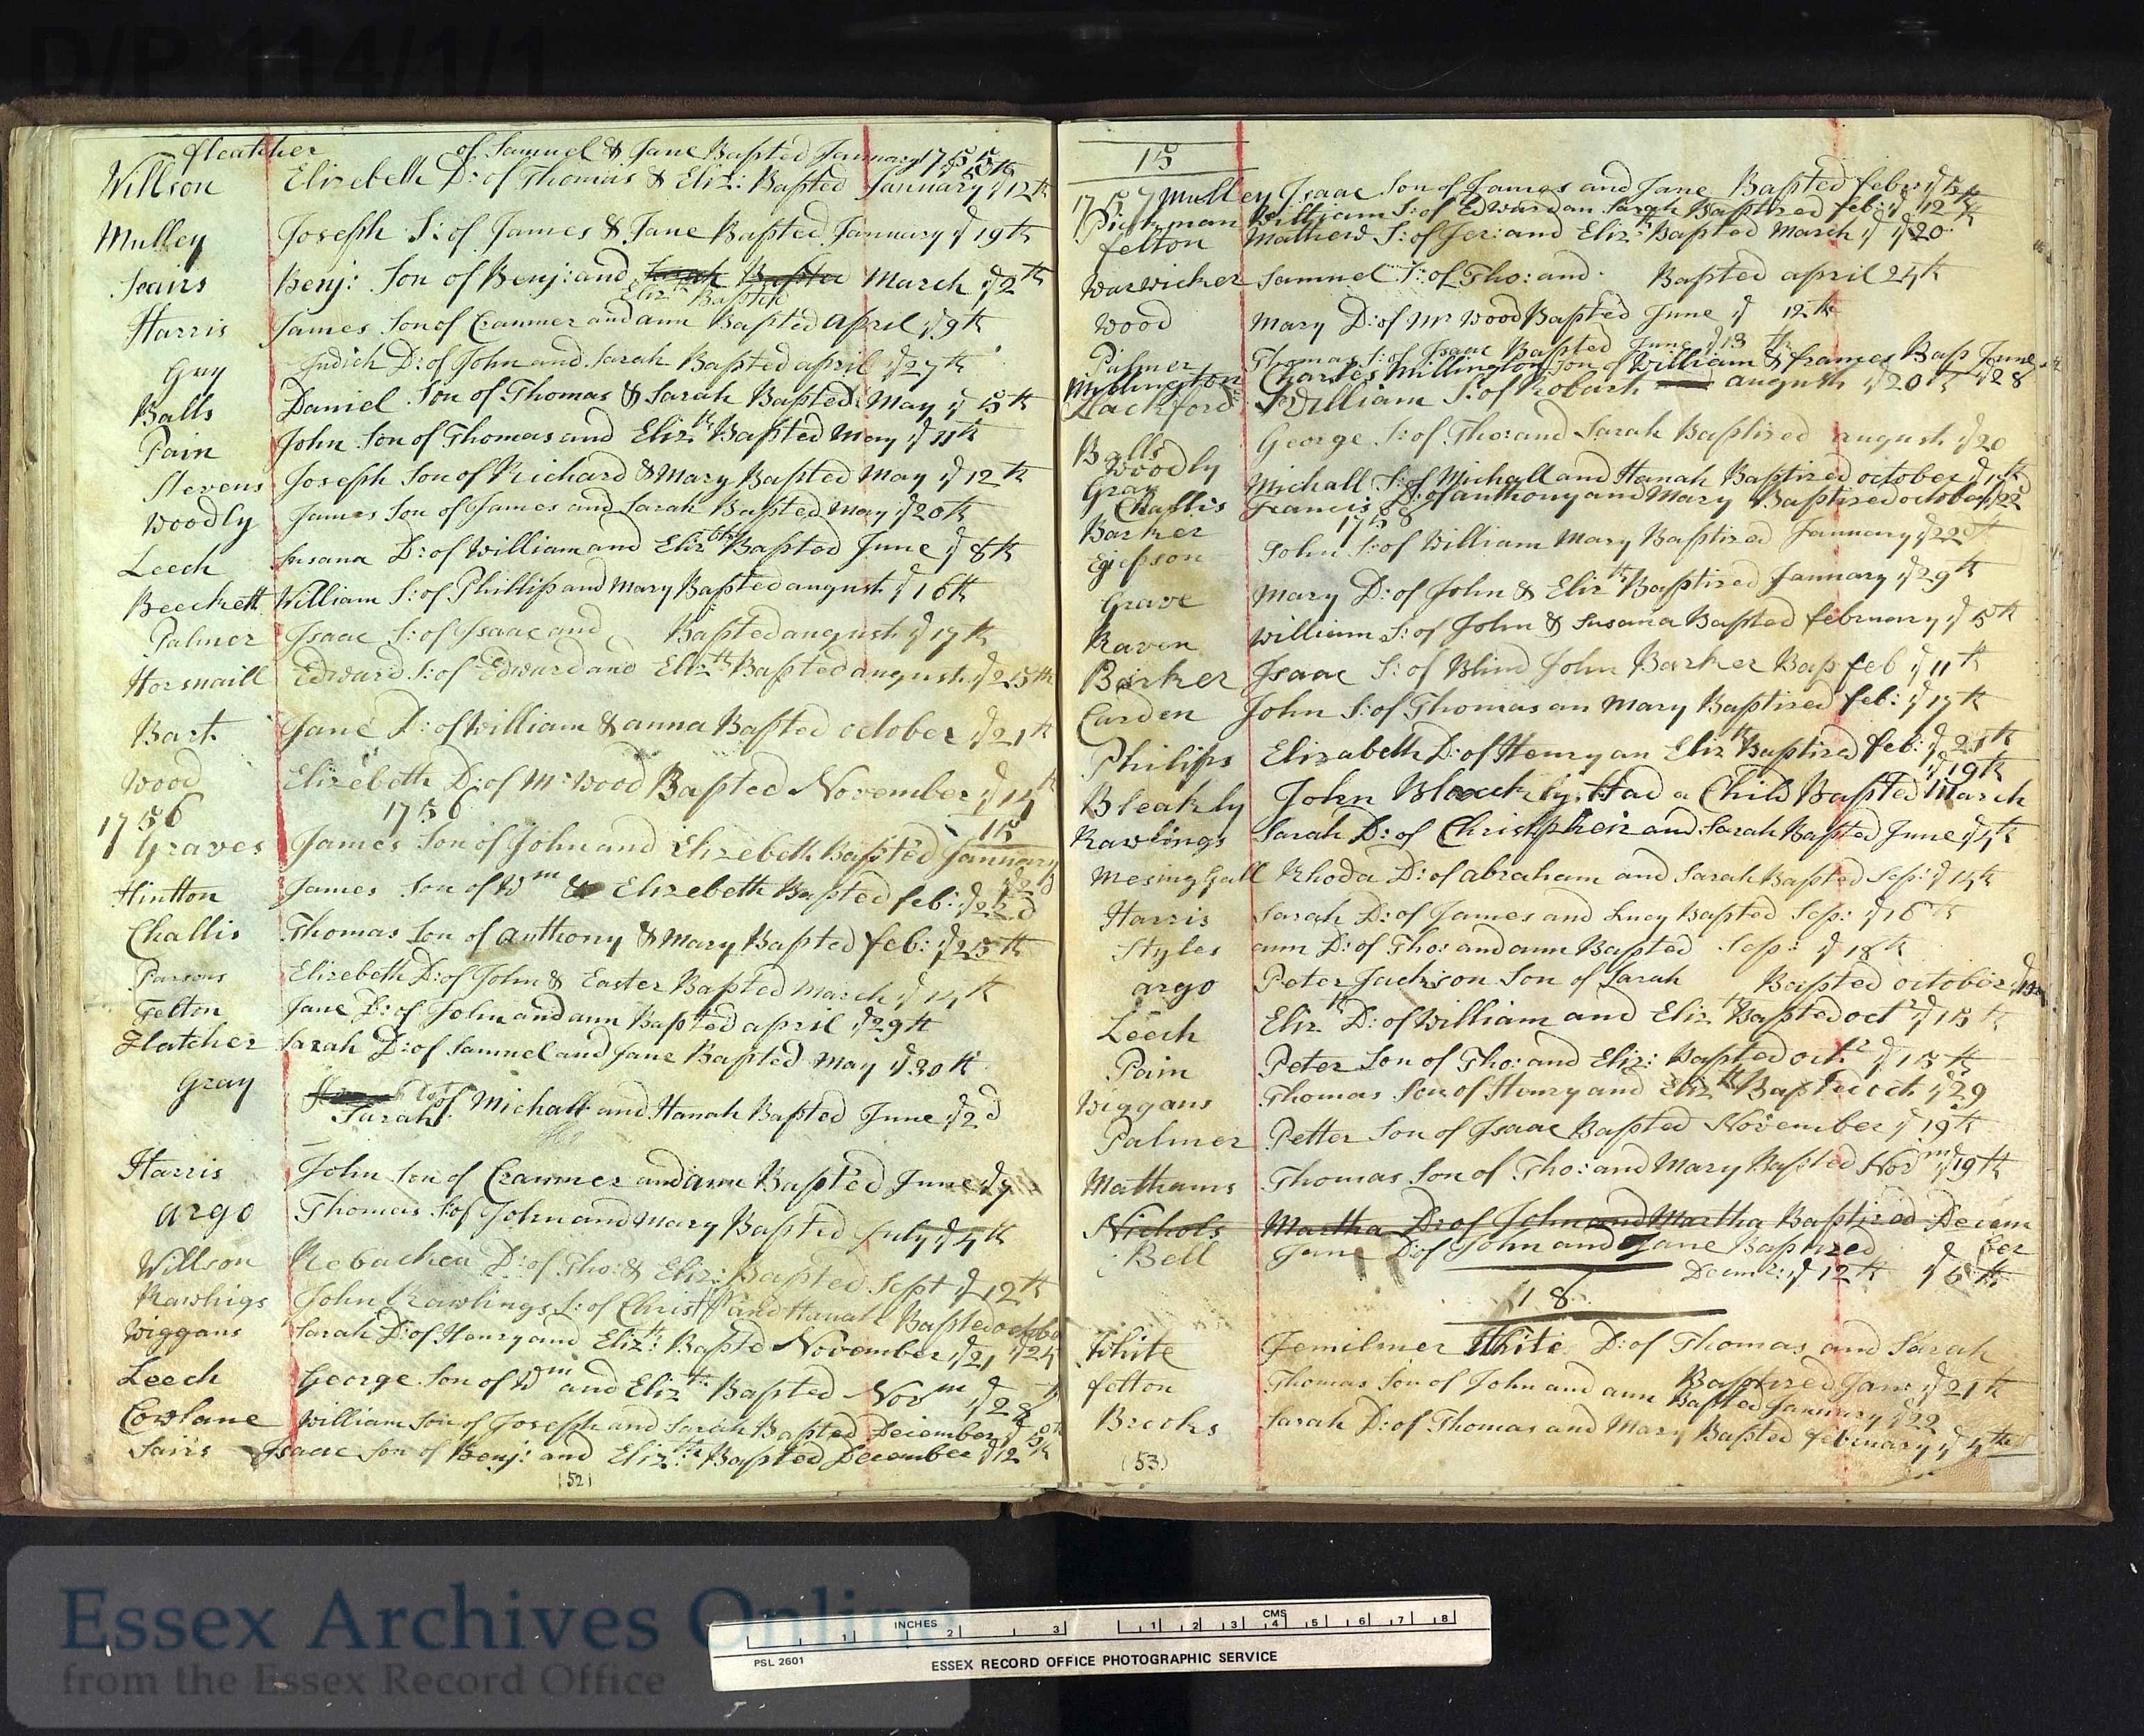 D/P 114/1/1
fleatcher of Samuel & Jane Bapted January 1755
Willson Elizebeth D: of Thomas & Eliz: Bapted January ye 12th
Mulley Joseph S: of James & Jane Bapted January ye 19th
Sairs Benj: Son of Benj: and Sarah Bapted March ye 2th
Elizth Bapted
Harris James Son of Cranmer and ann Bapted april ye 9th
Guy Judieh D: of John and Sarah Bapted april ye 27th
Balls Daniel Son of Thomas & Sarah Bapted May ye 5th
Pain John Son of Thomas and Elizth Bapted May ye 11th
Stevens Joseph Son of Richard & Mary Bapted May ye 12th
Woodly James Son of James and Sarah Bapted May ye 20th
Leech Susana D: of William and Elizbth Bapted June ye 8th
Beeckett William S: of Phillip and Mary Bapted august ye 16th
Palmer Isaac S: of Isaac and Bapted august ye 17th
Horsnaill Edward S: of Edward and Elizth Bapted august ye 25th
Bart Jane D: of William & anna Bapted october ye 21th
Wood Elizebeth D: of Mr Wood Bapted November ye 14th
1756 1756
Graves James Son of John and Elizebeth Bapted January
15
Hintton James Son of Wm & Elizebeth Bapted feb: ye 22d
Challis Thomas Son of anthony & Mary Bapted feb: ye 25th
Parsons Elizebeth D: of John & Easter Bapted March ye 14th
Felton Jane D: of John and ann Bapted april ye 29th
Flatcher Sarah D: of Samuel and Jane Bapted May ye 30th
Gray of Michall and Hanah Bapted June ye 2d
Sarah
Harris John Son of Cranmer and ann Bapted June ye 9
argo Thomas S: of John and Mary Bapted July ye 4th
Willson Rebachea D: of Tho: & Eliz: Bapted Sept ye 12th
Rawligs John Rawlings S: of Christ and Hanah Bapted octobe
Wiggans Sarah D: of Henry and Elizth: Bapted November ye 21 ye 24
Leech George Son of Wm and Elizth Bapted Novm ye 28
Cowlane William Son of Joseph and Sarah Bapted December ye 5th
Sairs Isaac Son of Benj: and Elizth Bapted December ye 12th
(52)
15
1757 Mulley Isaac Son of James and Jane Bapted feb: ye 5th
William S: of Edward an Sarah Baptized feb: ye 12th
felton Mathew S: of Jer: and Elizth Bapted March ye 20
Warwicker Samuel S: of Tho: and Bapted april 24th
Wood Mary D: of Mr Wood Bapted June ye 12th
Palmer Thomas S: of Isaac Bapted June ye 13th
Millington Charles Millington Son of William & frances Bap June ye 28
William S: of Robart august ye 20th
Balls George S: of Tho: and Sarah Baptized august ye 20
Woodly
Gray Michall S: of Michall and Hanah Baptized october ye 14th
Challis Francis D: of anthony and Mary Baptized october ye 22
1758
Barker John S: of William Mary Baptized January ye 22d
Egipson Mary D: of John & Elizth Baptized January ye 29th
Grave William S: of John & Susana Bapted february ye 5th
Raven
Barker Isaac S: of Blind John Barker Bap feb ye 11th
Carden John S: of Thomas an Mary Baptized feb: ye 17th
Philips Elizabeth D: of Henry an Elizth Baptized feb: ye 21th
ye 19th
Bleakly John Bleackly Had a Child Bapted March
Rawlings Sarah D: of Christpheir and Sarah Bapted June ye 4th
Mesinghall Rhoda D: of abraham and Sarah Bapted Sep: ye 14th
Harris Sarah D: of James and Lucy Bapted Sep: ye 16th
Styles ann D: of Tho: and ann Bapted Sep: ye 18th
argo Peter Jackson Son of Sarah Bapted october
Leech Elizth D: of William and Elizth Bapted oct ye 15th
Pain Peter Son of Tho: and Eliz: Bapted oct ye 15th
Wiggans Thomas Son of Henry and Elizth Bapted oct ye 29
Palmer Petter Son of Isaac Bapted November ye 19th
Mathams Thomas Son of Tho: and Mary Bapted Novm ye 19th
Nichols Martha D: of John and Martha Baptized Decem
ber
Bell Jane D: of John and Jane Baptized
Decm: ye 12th ye 6th
18
White Jemilmer White D: of Thomas and Sarah
Baptized Jan: ye 21th
felton Thomas Son of John and ann Bapted January ye 22
Brooks Sarah D: of Thomas and Mary Bapted february ye 4th
(53)
Essex Archives Online
from the Essex Record Office
INCHES 1 2 3 CMS 1 2 3 4 5 6 7 8
PSL 2601 ESSEX RECORD OFFICE PHOTOGRAPHIC SERVICE